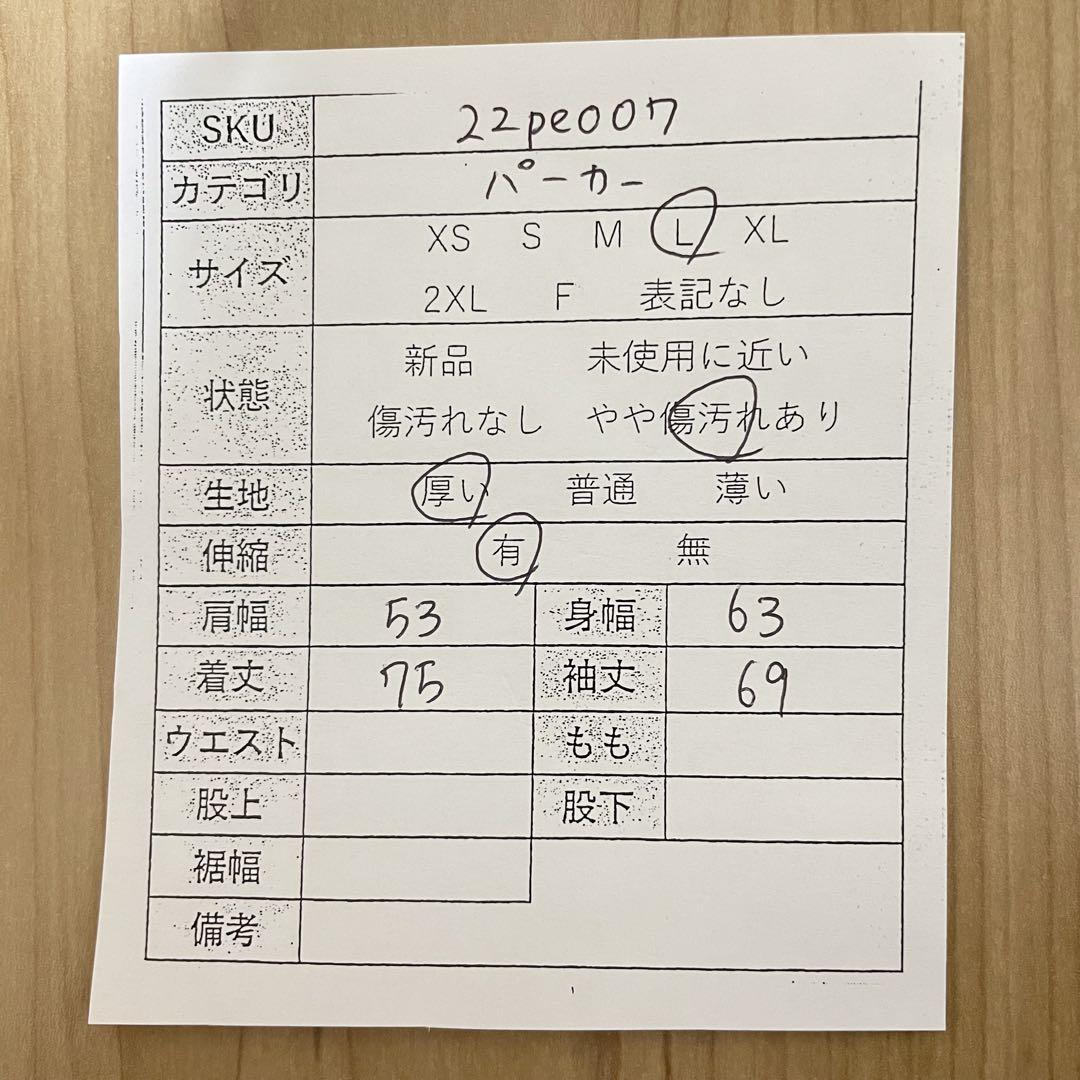 SKU 22pe007
カテゴリ パーカー
サイズ XS S M L XL
2XL F 表記なし
状態 新品 未使用に近い
傷汚れなし やや傷汚れあり
生地 厚い 普通 薄い
伸縮 有 無
肩幅 53 身幅 63
着丈 75 袖丈 69
ウエスト もも
股上 股下
裾幅
備考